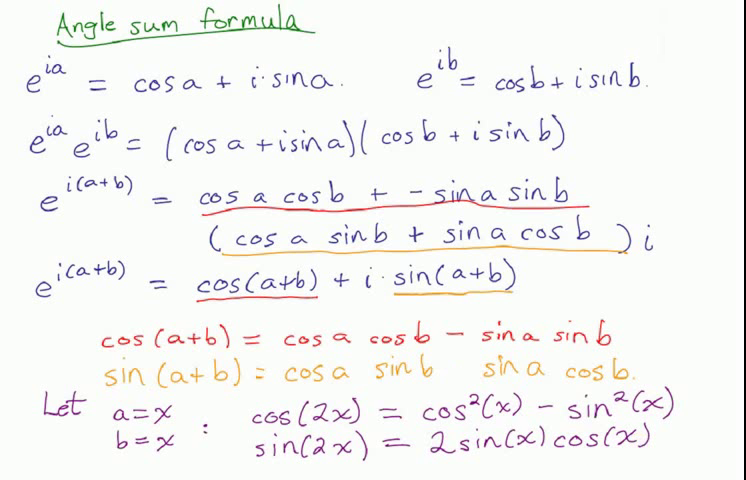 Angle sum formula
e^{ia} = cos a + i·sin a. e^{ib} = cos b + i sin b.
e^{ia} e^{ib} = (cos a + i sin a)(cos b + i sin b)
e^{i(a+b)} = cos a cos b + - sin a sin b
(cos a sin b + sin a cos b) i
e^{i(a+b)} = cos(a+b) + i· sin(a+b)
cos (a+b) = cos a cos b - sin a sin b
sin (a+b) = cos a sin b sin a cos b.
Let a=x : cos(2x) = cos²(x) - sin²(x)
b=x sin(2x) = 2 sin(x) cos(x)